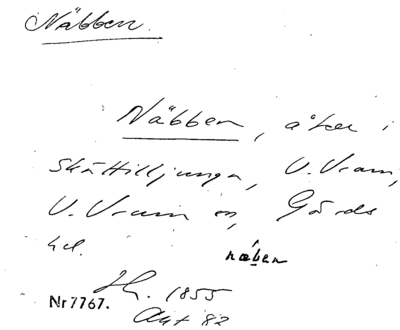 Näbben.
Näbben, åker i
Skättilljunga, V. Vram,
V. Vram sn, Gärds
hd.
näben
1855
Nr 7767.
Akt 82